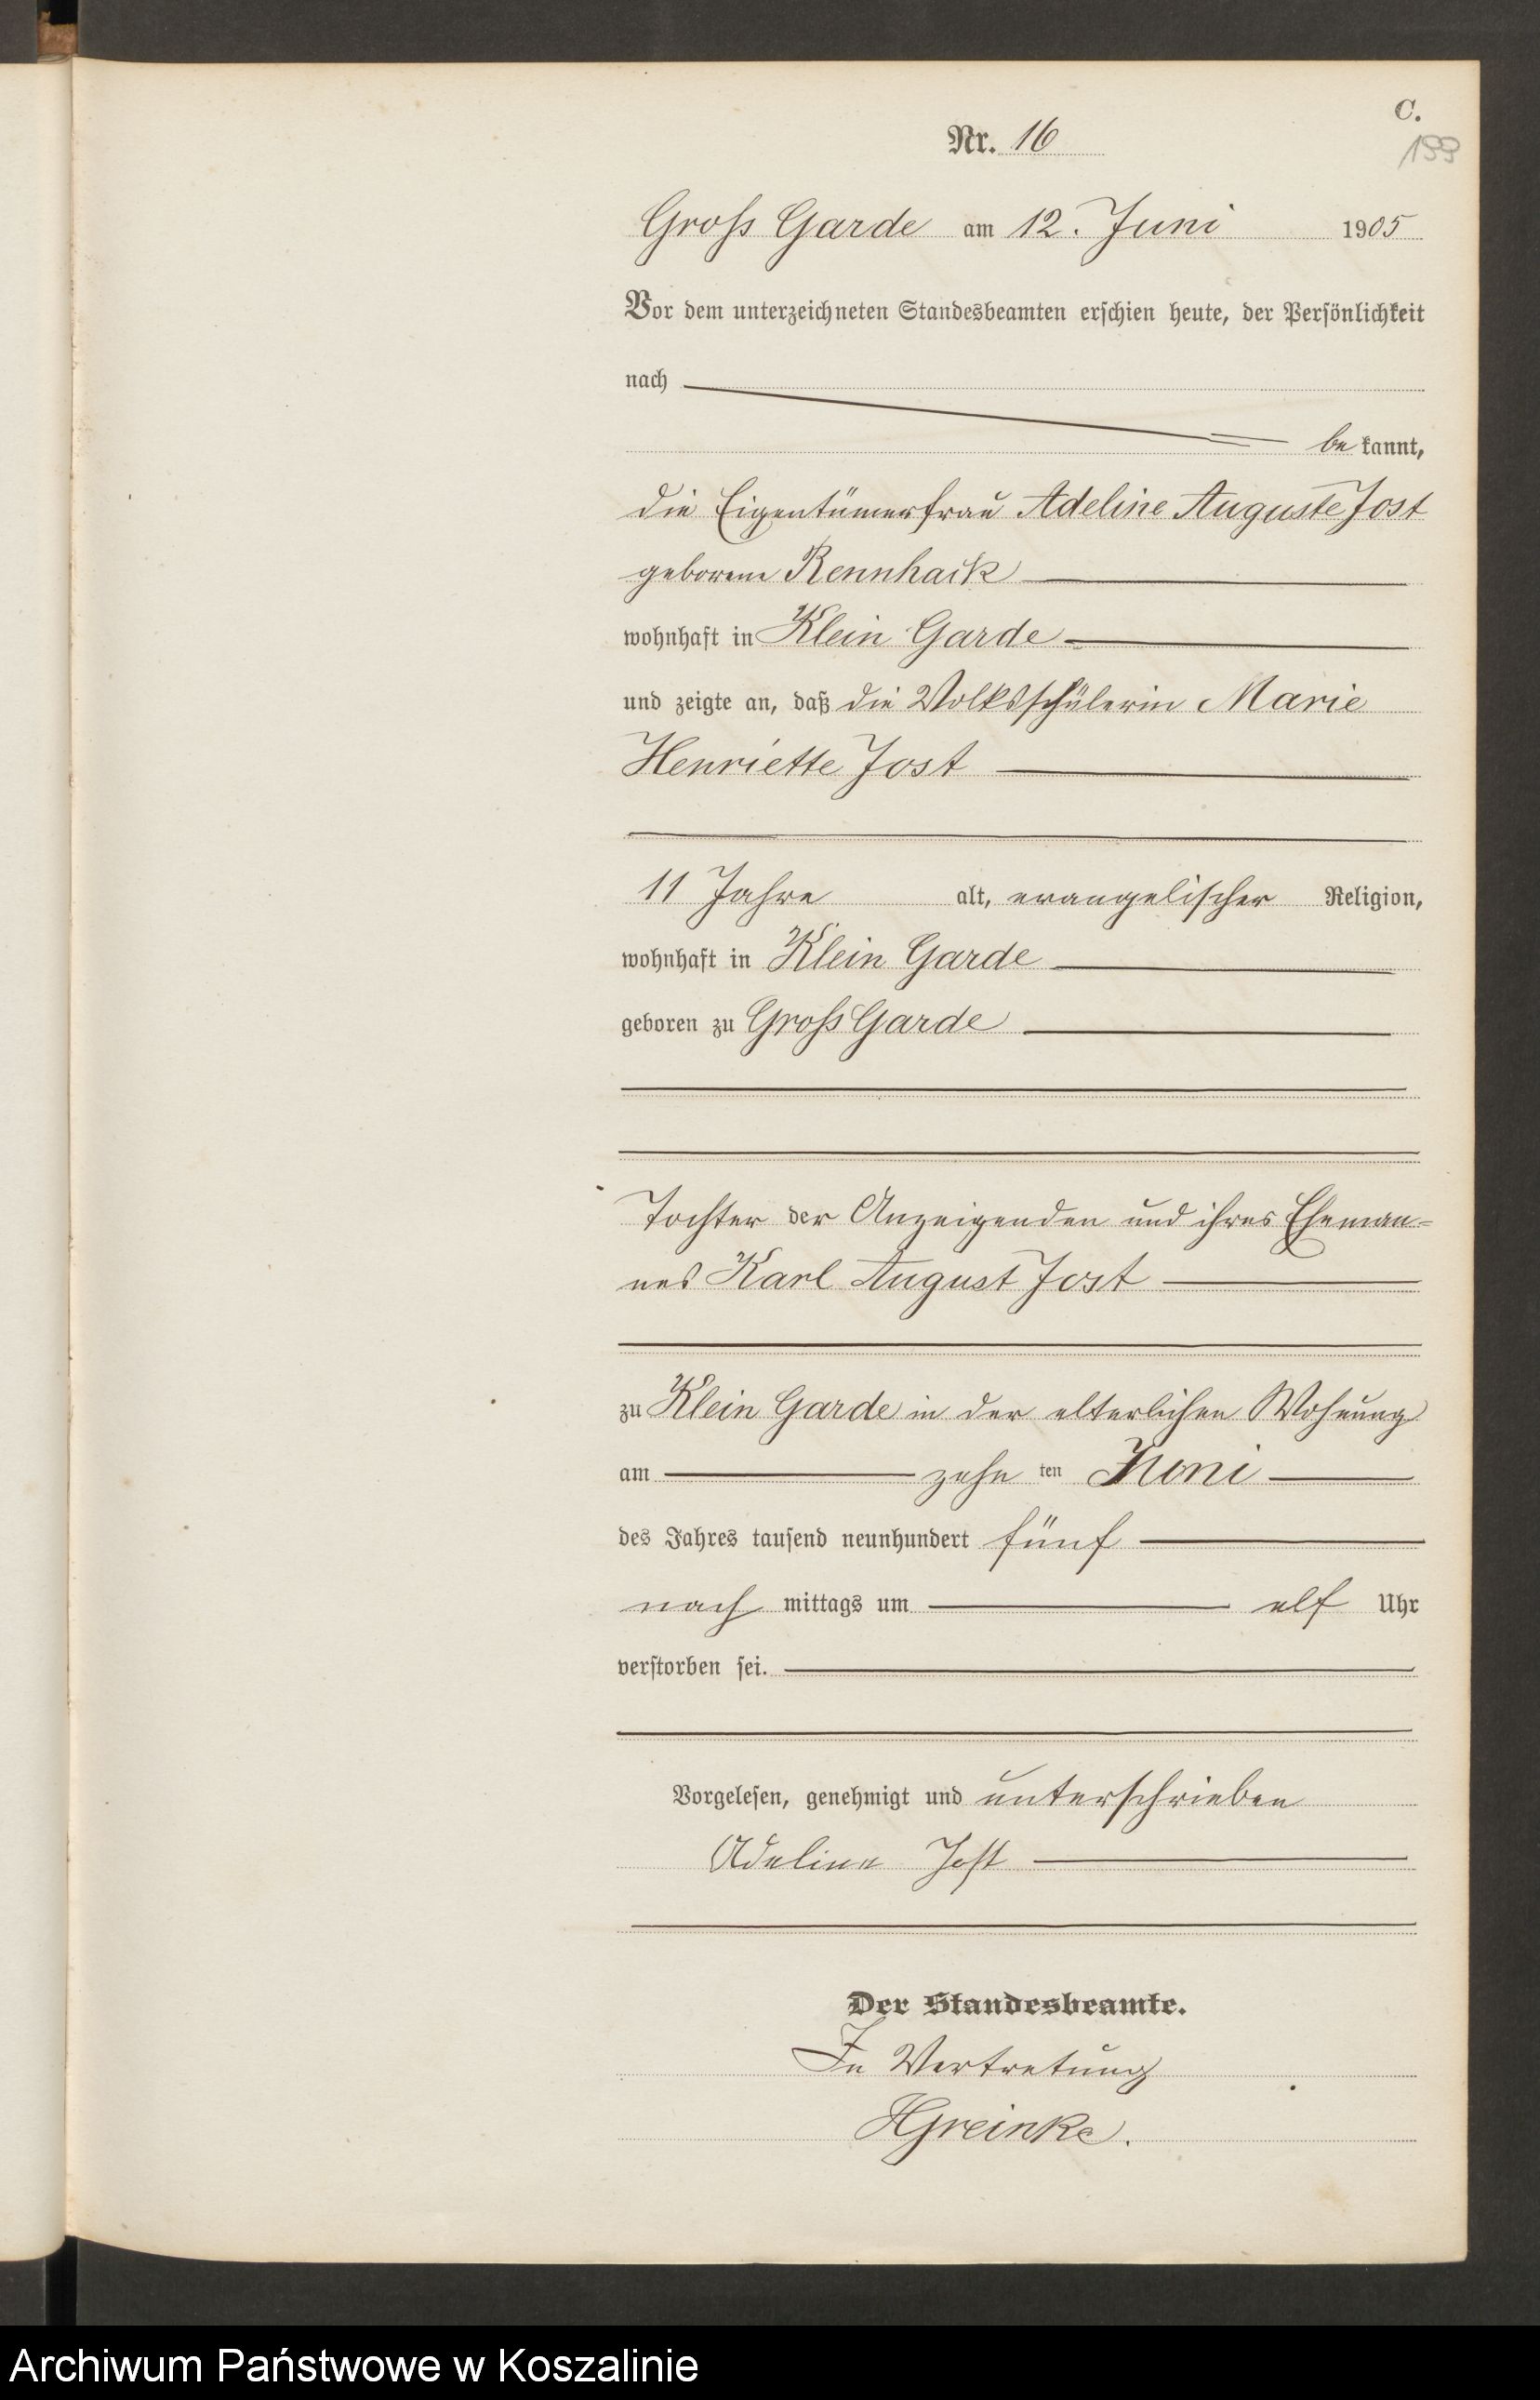 C.
Nr. 16
199
Gross Garde am 12. Juni 1905
Vor dem unterzeichneten Standesbeamten erschien heute, der Persönlichkeit
nach
be kannt,
die Eigentümerfrau Adeline Auguste Jost
geborene Rennhack
wohnhaft in Klein Garde
und zeigte an, daß die Volksschülerin Marie
Henriette Jost
11 Jahre alt, evangelischer Religion,
wohnhaft in Klein Garde
geboren zu Gross Garde
Tochter der Anzeigenden und ihres Eheman-
nes Karl August Jost
zu Klein Garde in der elterlichen Wohnung
am zehn ten Juni
des Jahres tausend neunhundert fünf
nach mittags um elf Uhr
verstorben sei.
Vorgelesen, genehmigt und unterschrieben
Adeline Jost
Der Standesbeamte.
In Vertretung
HGreinke.
Archiwum Państwowe w Koszalinie